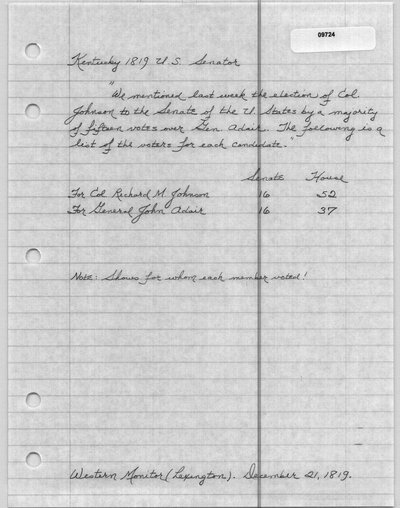 09724
Kentucky 1819 U.S. Senator
"We mentioned last week the election of Col.
Johnson to the Senate of the U. States by a majority
of fifteen votes over Gen. Adair. The following is a
list of the voters for each candidate."
Senate House
For Col. Richard M. Johnson 16 52
For General John Adair 16 37
Note: Shows for whom each member voted!
Western Monitor (Lexington). December 21, 1819.